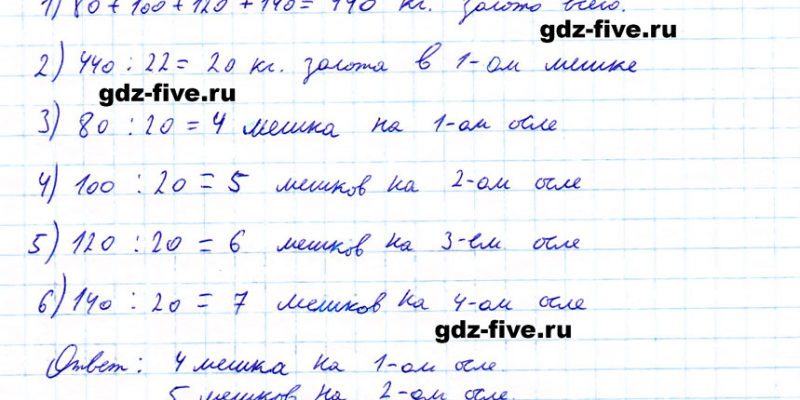 1) 80 + 100 + 120 + 140 = 440 кг. золота всего.
gdz-five.ru
2) 440 : 22 = 20 кг. золота в 1-ом мешке
gdz-five.ru
3) 80 : 20 = 4 мешка на 1-ом осле
4) 100 : 20 = 5 мешков на 2-ом осле
5) 120 : 20 = 6 мешков на 3-ем осле
6) 140 : 20 = 7 мешков на 4-ом осле
gdz-five.ru
Ответ: 4 мешка на 1-ом осле
5 мешков на 2-ом осле.